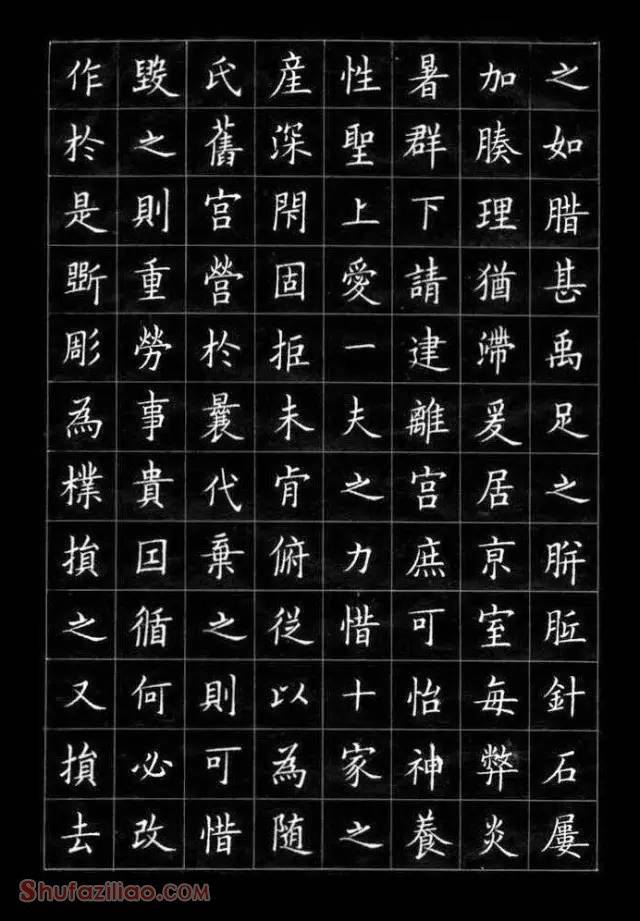 之如腊甚禹足之胼胝針石屢
加腠理猶滯爰居京室每弊炎
暑群下請建離宮庶可怡神養
性聖上愛一夫之力惜十家之
産深閇固拒未肯俯從以為随
氏舊宮營於曩代棄之則可惜
毀之則重勞事貴因循何必改
作於是斲彫為樸損之又損去
Shufaziliao.COM